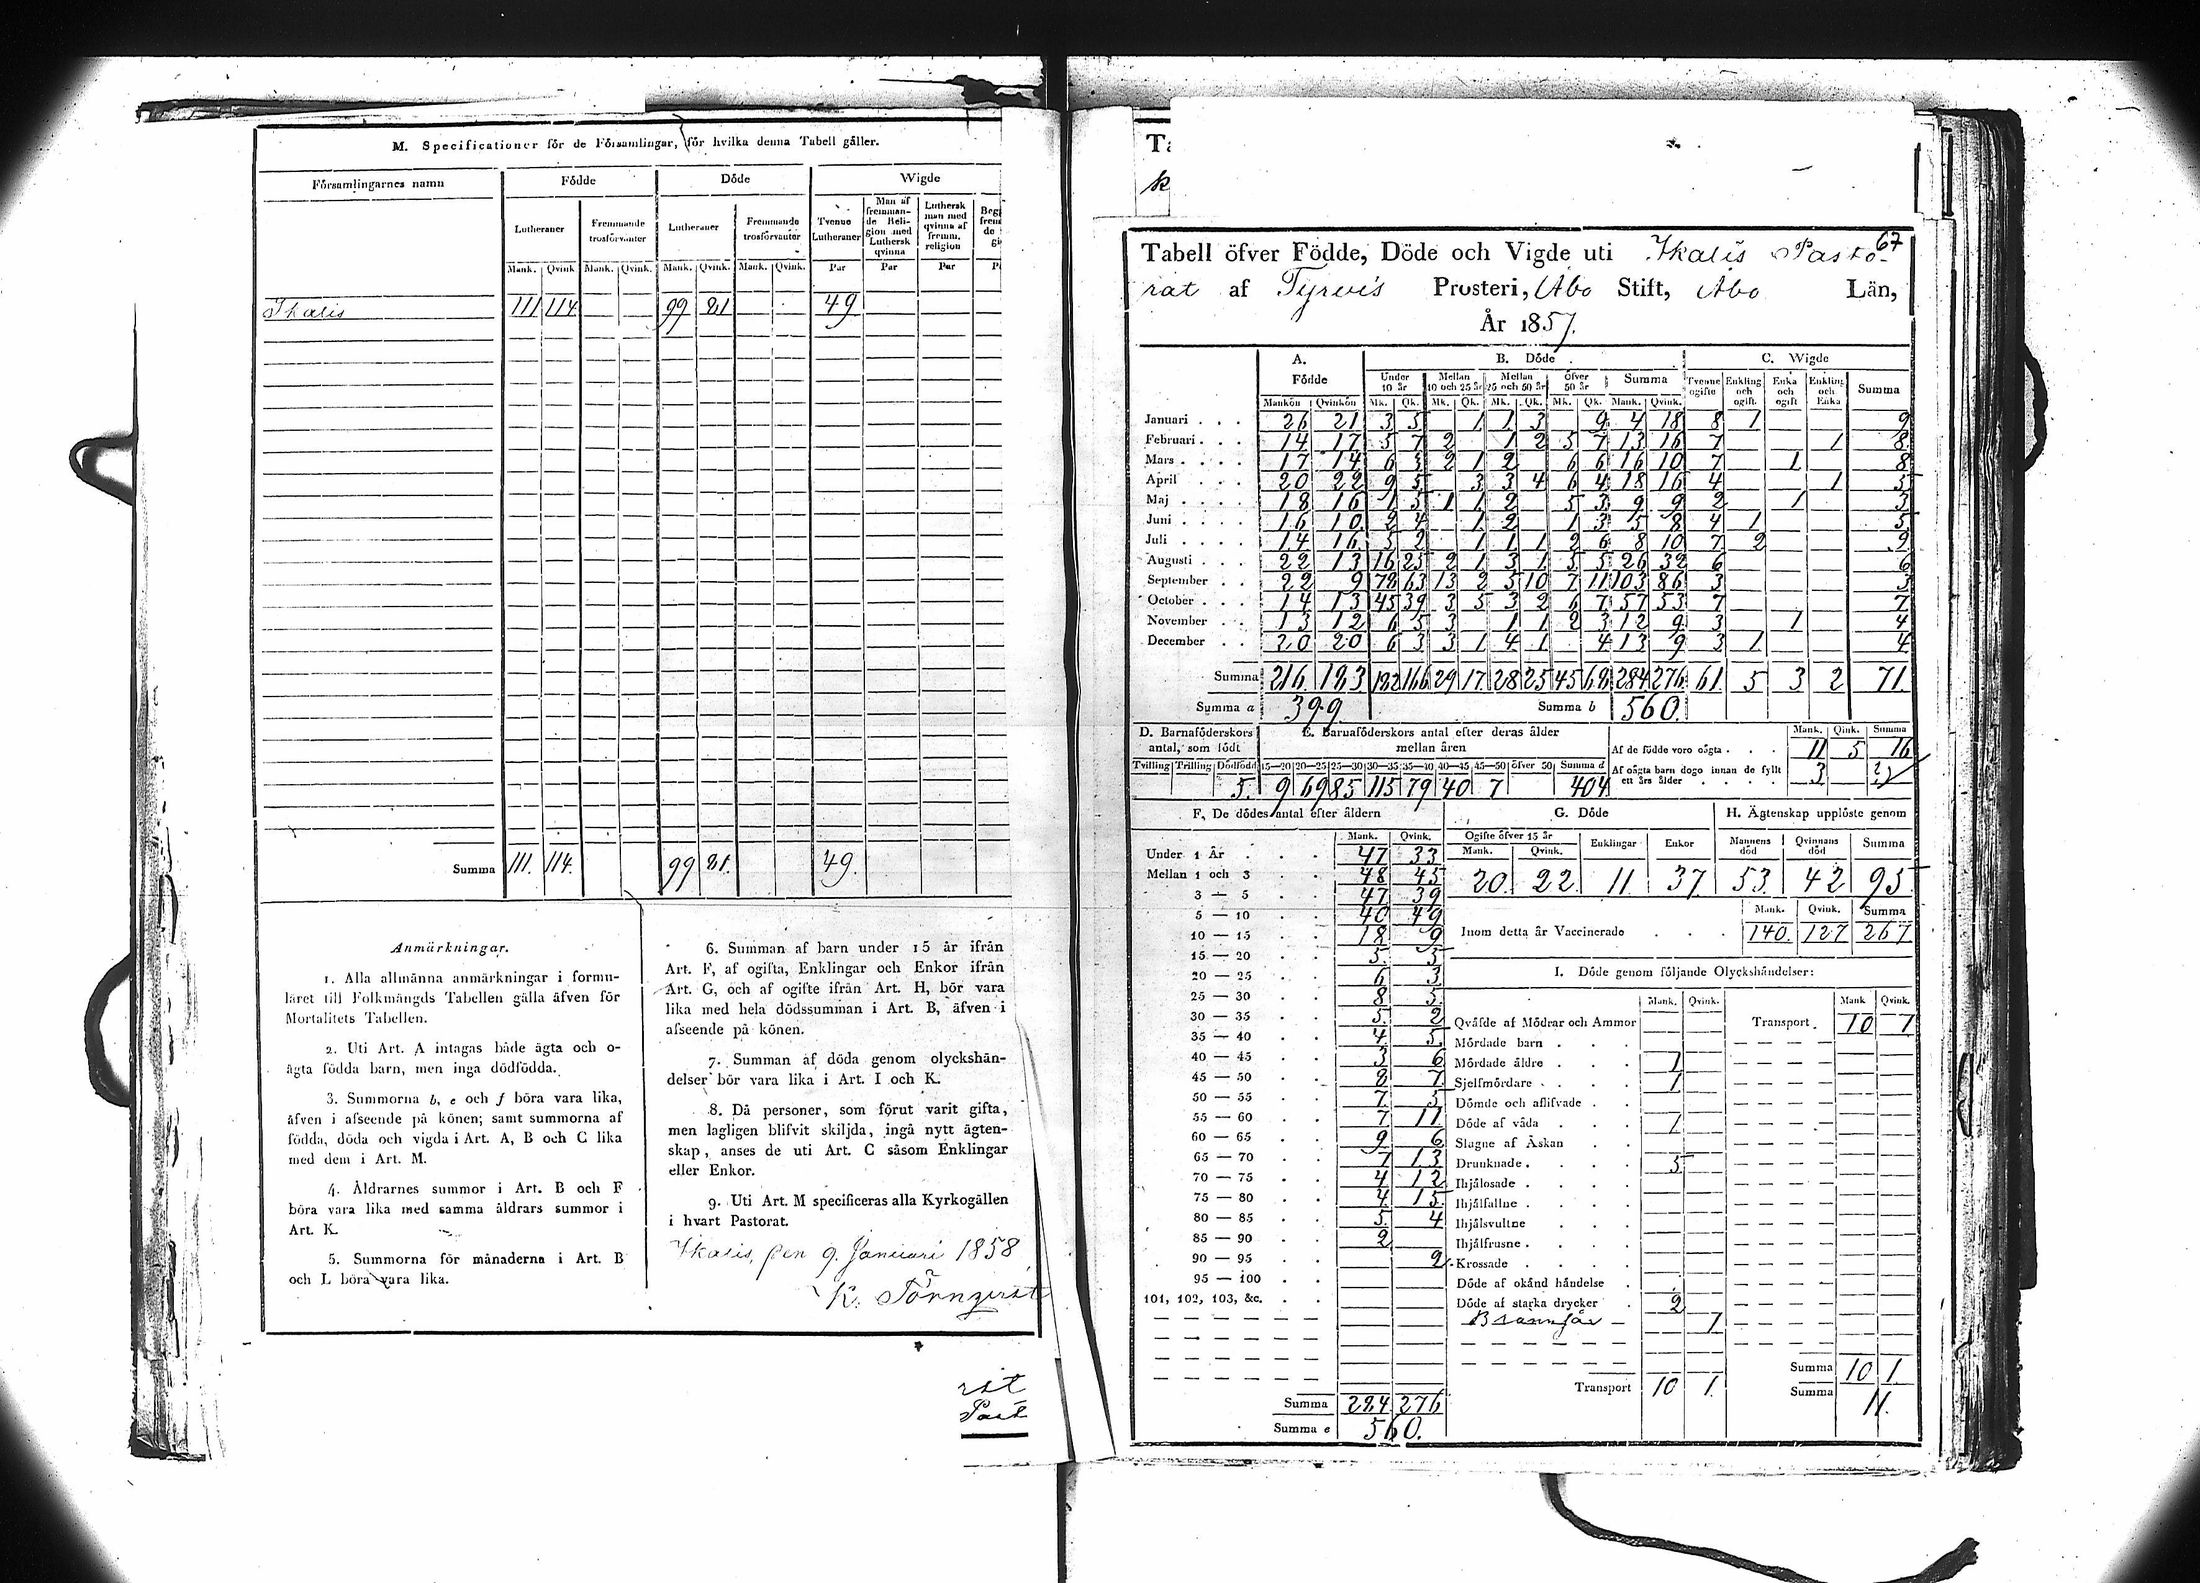 M. Specificationer för de Församlingar, för hvilka denna Tabell gäller.
Församlingarnes namn Födde Döde Wigde
Lutheraner Fremmande trosförvanter Lutheraner Fremmande trosförvanter Tvenne Lutheraner Man af fremmande Religion med Luthersk qvinna Luthersk man med qvinna af fremm. religion
Mank. Qvink Mank. Qvink. Mank. Qvink. Mank. Qvink. Par Par Par
Ikalis 111 114 99 81 49
Summa 111. 114. 99 81. 49.
Anmärkningar.
1. Alla allmänna anmärkningar i formu-
läret till Folkmängds Tabellen gälla äfven för
Mortalitets Tabellen.
2. Uti Art. A intagas både ägta och o-
ägta födda barn, men inga dödfödda.
3. Summorna b, e och f böra vara lika,
äfven i afseende på könen; samt summorna af
födda, döda och vigda i Art. A, B och C lika
med dem i Art. M.
4. Åldrarnes summor i Art. B och F
böra vara lika med samma åldrars summor i
Art. K.
5. Summorna för månaderna i Art. B
och L böra vara lika.
6. Summan af barn under 15 år ifrån
Art. F, af ogifta, Enklingar och Enkor ifrån
Art. G, och af ogifte ifrån Art. H, bör vara
lika med hela dödssumman i Art. B, äfven i
afseende på könen.
7. Summan af döda genom olyckshän-
delser bör vara lika i Art. I och K.
8. Då personer, som förut varit gifta,
men lagligen blifvit skiljda, ingå nytt ägten-
skap, anses de uti Art. C såsom Enklingar
eller Enkor.
9. Uti Art. M specificeras alla Kyrkogällen
i hvart Pastorat.
Ikalis, den 9. Januari 1858
K. Törnqvist
67
Tabell öfver Födde, Döde och Vigde uti Ikalis Pasto-
rat af Tyrvis Prosteri, Åbo Stift, Åbo Län,
År 1857.
A. Födde B. Döde C. Wigde
Under 10 år Mellan 10 och 25 år Mellan 25 och 50 år öfver 50 år Summa Tvenne ogifte Enkling och ogift. Enka och ogift Enkling och Enka Summa
Mankön Qvinkön Mk. Qk. Mk. Qk. Mk. Qk. Mk. Qk. Mank. Qvink.
Januari 26 21 3 5 1 1 3 9 4 18 8 1 9
Februari 14 17 5 7 2 1 2 5 7 13 16 7 1 8
Mars 17 14 6 3 2 1 2 6 6 16 10 7 1 8
April 20 22 9 5 3 3 4 6 4 18 16 4 1 5
Maj 18 16 1 5 1 1 2 5 3 9 9 2 1 3
Juni 16 10 2 4 1 2 1 3 5 8 4 1 5
Juli 14 16 5 2 1 1 1 2 6 8 10 7 2 9
Augusti 22 13 16 25 2 1 3 1 5 5 26 32 6 6
September 22 9 78 63 13 2 5 10 7 11 103 86 3 3
October 14 13 45 39 3 5 3 2 6 7 57 53 7 7
November 13 12 6 5 3 1 1 2 3 12 9 3 1 4
December 20 20 6 3 3 1 4 1 4 13 9 3 1 4
Summa 216. 183 182 166 29 17. 28 25 45 68 284 276 61. 5 3 2 71.
Summa a 399 Summa b 560.
D. Barnaföderskors antal, som födt E. Barnaföderskors antal efter deras ålder mellan åren Mank. Qink. Summa
Af de födde voro oägta 11 5 16
Tvilling Trilling Dödfödd 15—20 20—25 25—30 30—35 35—40 40—45 45—50 öfver 50 Summa d
Af oägta barn dogo innan de fyllt ett års ålder 3
5. 9 69 85 115 79 40 7 404
F. De dödes antal efter åldern G. Döde H. Ägtenskap upplöste genom
Mank. Qvink. Ogifte öfver 15 år Mank. Qvink. Enklingar Enkor Mannens död Qvinnans död Summa
20. 22. 11. 37. 53. 42 95
Under 1 År 47 33
Mellan 1 och 3 48 45
3 — 5 47 39
5 — 10 40 49
10 — 15 18 9
15 — 20 5. 5
20 — 25 6 3
25 — 30 8 5.
30 — 35 5. 2
35 — 40 4 5
40 — 45 3 6
45 — 50 8 7.
50 — 55 7. 5
55 — 60 7 11
60 — 65 9 6
65 — 70 7 13
70 — 75 4 12
75 — 80 4. 15
80 — 85 5. 4
85 — 90 2
90 — 95 2
95 — 100
101, 102, 103, &c.
Summa 284 276
Summa e 560.
Mank. Qvink. Summa
Inom detta år Vaccinerade 140. 127 267
I. Döde genom följande Olyckshändelser:
Mank. Qvink. Mank Qvink.
Qväfde af Mödrar och Ammor Transport 10 1
Mördade barn
Mördade äldre 1
Sjelfmördare 1
Dömde och aflifvade
Döde af våda 1
Slagne af Åskan
Drunknade 5
Ihjälosade
Ihjälfallne
Ihjälsvultne
Ihjälfrusne
Krossade
Döde af okänd händelse
Döde af starka drycker 2
1
Summa 10 1
Transport 10 1. Summa 11.